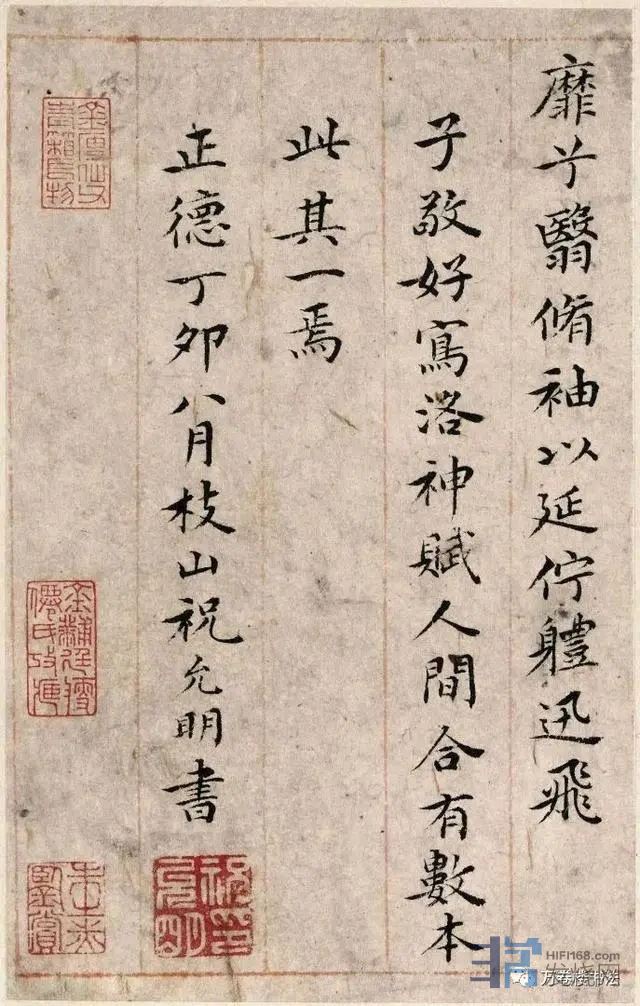 靡兮翳脩袖以延佇軆迅飛
子敬好寫洛神賦人間合有數本
此其一焉
正德丁卯八月枝山祝允明書
祝允明印
HIFI168.com
万卷楼书法